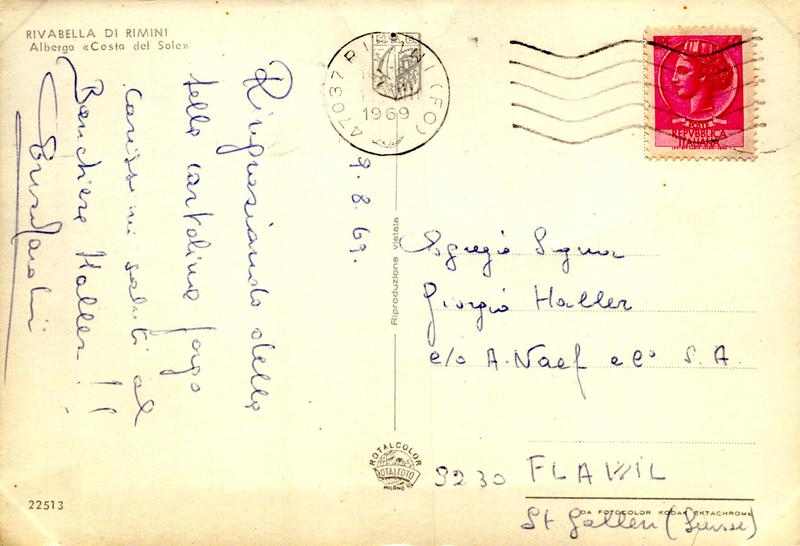 RIVABELLA DI RIMINI
Albergo «Costa del Sole»
Ringraziando della
bella cartolina porgo
carissimi saluti al
Banchiere Haller !!
9.8.69.
47037 RIMINI (FO)
1969
POSTE
REPVBBLICA
ITALIANA
Egregio Signor
Giorgio Haller
c/o A. Naef e Co S. A.
9230 FLAWIL
St. Gallen (Suisse)
Riproduzione vietata
ROTALCOLOR
ROTALFOTO
MILANO
22513
DA FOTOCOLOR KODAK EKTACHROME